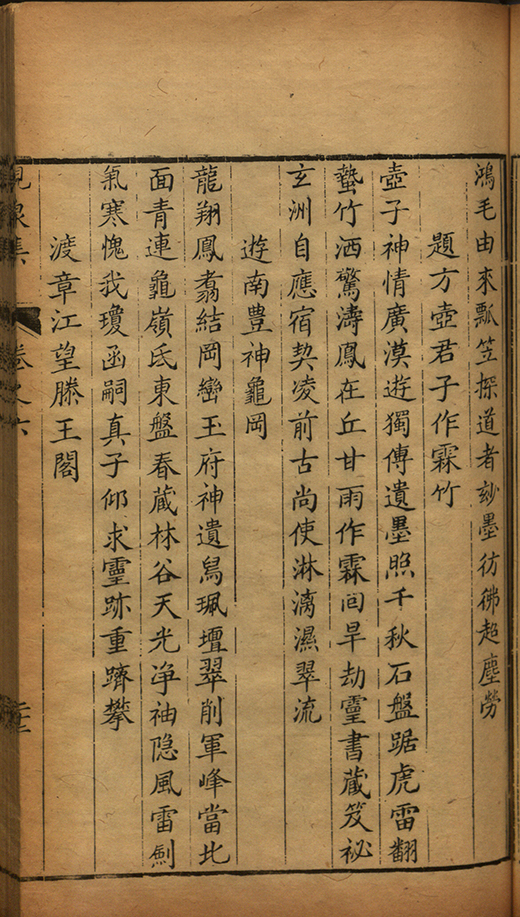 鴻毛由來瓢笠探道者玅墨彷彿超塵勞
題方壺君子作霖竹
壺子神情廣漠遊獨傳遺墨照千秋石盤踞虎雷翻
蟄竹洒驚濤鳳在丘甘雨作霖囘旱劫靈書蔵笈祕
玄洲自應宿契凌前古尚使淋漓濕翠流
遊南豊神龜岡
龍翔鳳翥結岡巒玉府神遺舃珮壇翠削軍峰當北
面青連龜嶺氐東盤春蔵林谷天光淨袖隐風雷劍
氣寒愧我瓊函嗣真子仰求靈跡重躋攀
渡章江望滕王閣
峴泉集
卷之六